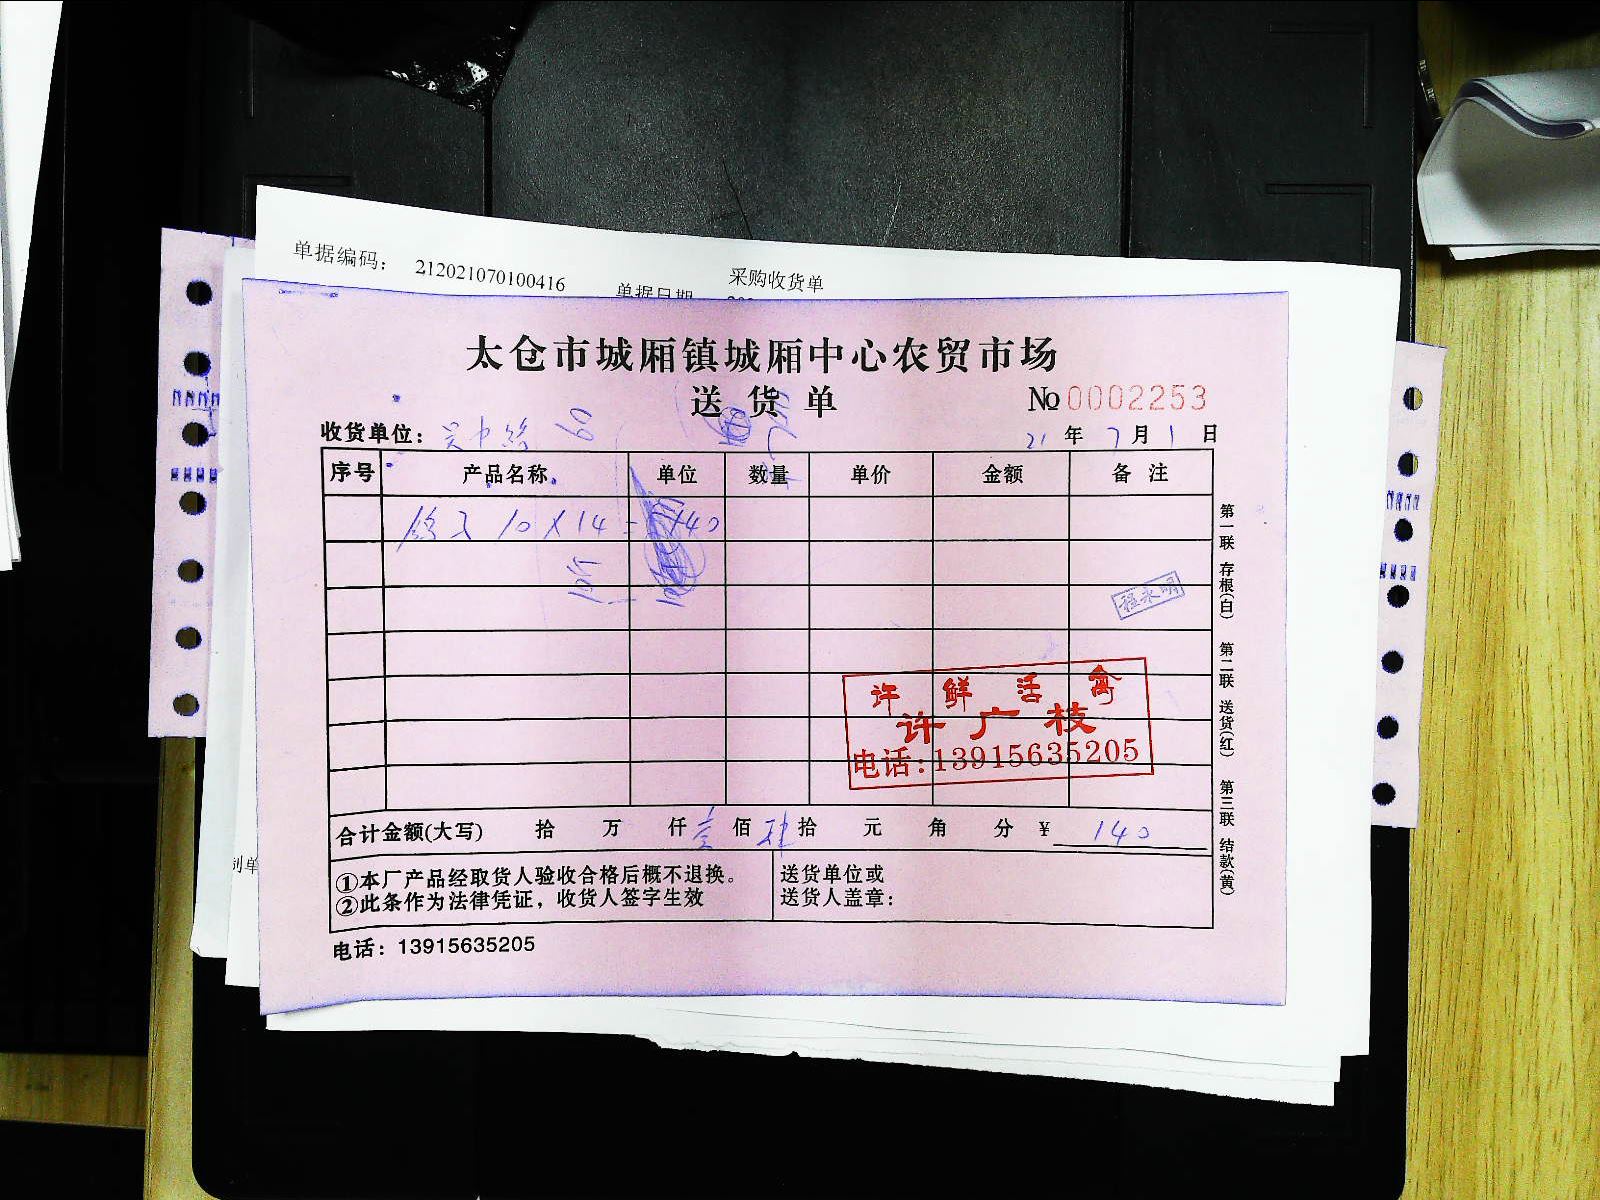 单据编码： 212021070100416
采购收货单
单据日期
太仓市城厢镇城厢中心农贸市场
送货单 № 0002253
收货单位： 21 年 7 月 1 日
序号 产品名称 单位 数量 单价 金额 备注
10 X 14 = 140
程永明
许鲜活禽
许广枝
电话:13915635205
合计金额(大写) 拾 万 仟 壹 佰 肆 拾 元 角 分 ¥ 140
①本厂产品经取货人验收合格后概不退换。
②此条作为法律凭证，收货人签字生效
送货单位或
送货人盖章：
电话：13915635205
第一联 存根(白) 第二联 送货(红) 第三联 结款(黄)
制单